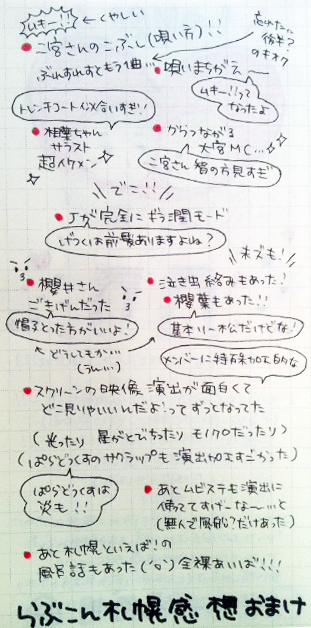 ムキー!!
くやしい
忘れてた…
後半?
のキオク
● 二宮さんのこぶし(唄い方)!!
● 唄いまちがえ〜
ムキー!!って
なってたよ
トレンチコートイメ合いすぎ!!
● 相葉ちゃん
サラスト
超イケメン
● からっながる
大宮MC…
二宮さん 智の方見すぎ
でこ!!
● Jが完全にギラ潤モード
げつくは前髪ありますよね?
末ズも!
● 櫻井さん
ごきげんだった
● 泣き虫絡みもあった!
● 櫻葉もあった!!
帽子とった方がいいよ!
基本リー松だけどな!
← どうしてもか…
(うん…)
メンバーに特殊加工的な
● スクリーンの映像 演出が面白くて
どこ見りゃいいんだよ!ってずっとなってた
(光ったり 星がとびちったり モノクロだったり)
(ぱらどっくすのサクラップも演出加工すごかった)
ぱらどっくすは
次も!!
● あとムビステも演出に
使っててすげーな〜…と
(無人で風船?だけあった)
● あと札幌といえば!の
風呂話もあった('◇')全裸あいば!!!
らぶこん札幌感想おまけ